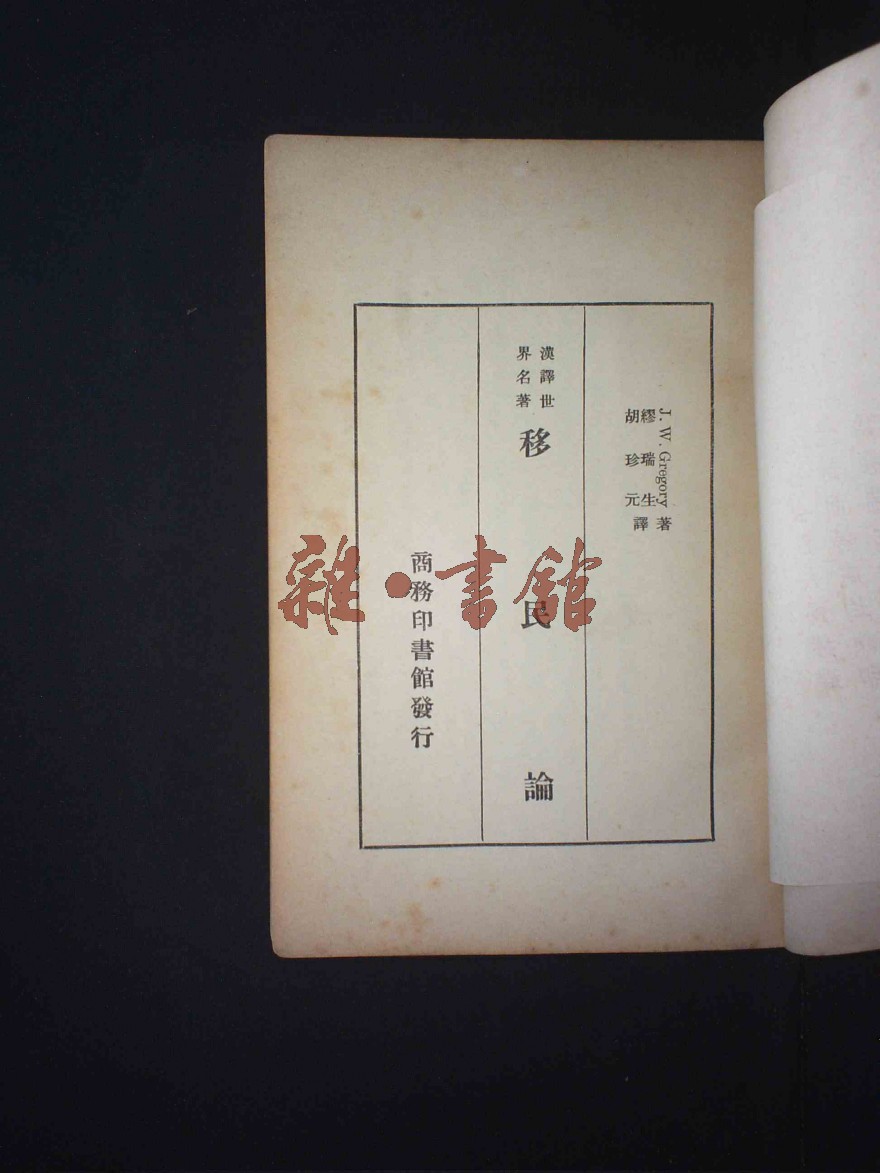 J. W. Gregory 著
繆瑞生
胡珍元 譯
漢譯世
界名著
移民論
商務印書館發行
雜·書館